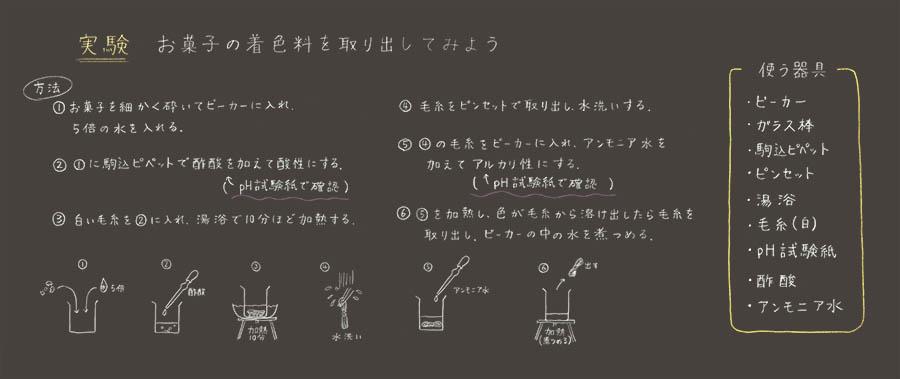 実験 お菓子の着色料を取り出してみよう
方法
①お菓子を細かく砕いてビーカーに入れ、
5倍の水を入れる。
②①に駒込ピペットで酢酸を加えて酸性にする。
(↑pH試験紙で確認)
③白い毛糸を②に入れ、湯浴で10分ほど加熱する。
④毛糸をピンセットで取り出し、水洗いする。
⑤④の毛糸をビーカーに入れ、アンモニア水を
加えてアルカリ性にする。
(↑pH試験紙で確認)
⑥⑤を加熱し、色が毛糸から溶け出したら毛糸を
取り出し、ビーカーの中の水を煮つめる。
①
5倍
②
酢酸
③
加熱
10分
④
水洗い
⑤
アンモニア水
⑥
出す
加熱
(煮つめる)
使う器具
・ビーカー
・ガラス棒
・駒込ピペット
・ピンセット
・湯浴
・毛糸(白)
・pH試験紙
・酢酸
・アンモニア水